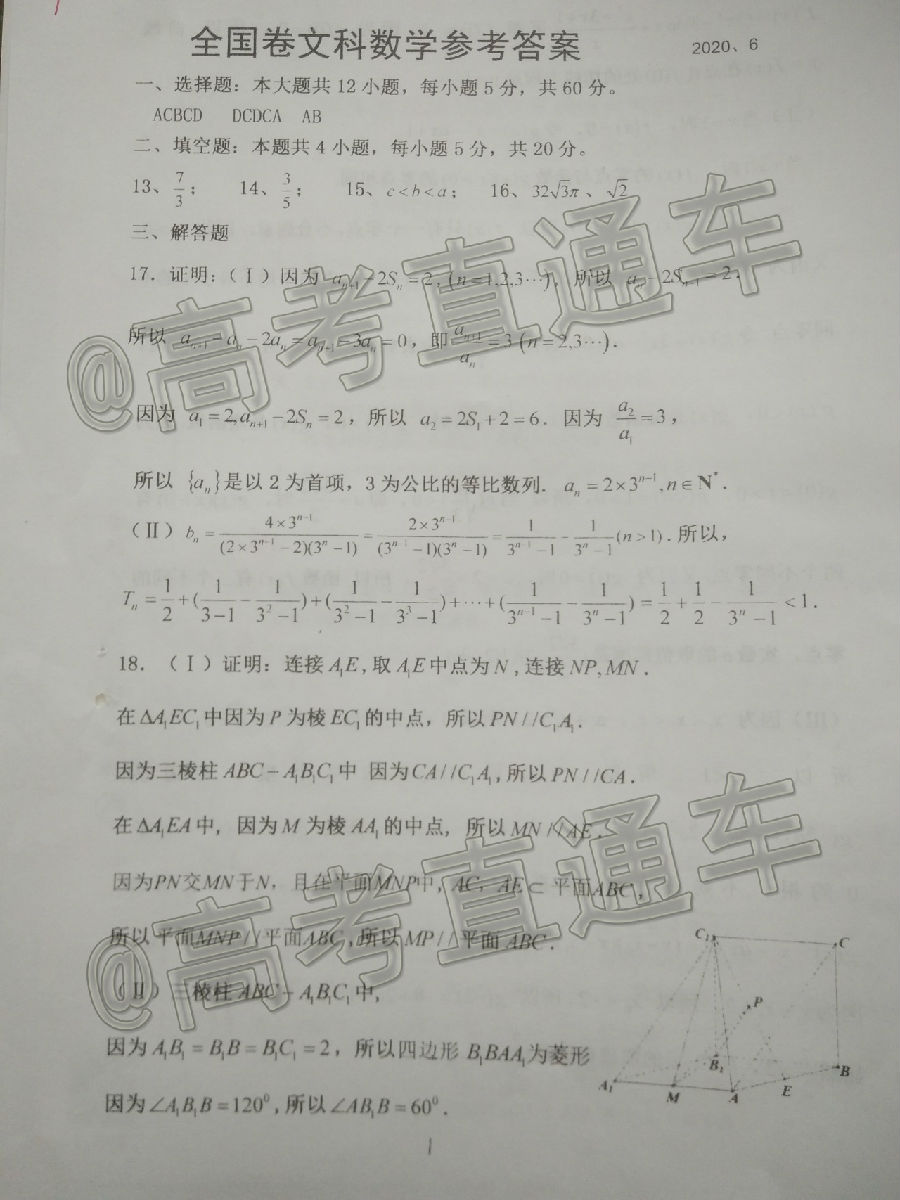 全国卷文科数学参考答案 2020、6
一、选择题：本大题共12小题，每小题5分，共60分。
ACBCD DCDCA AB
二、填空题：本题共4小题，每小题5分，共20分。
13、7/3； 14、3/5； 15、c<b<a； 16、32√3π、√2
三、解答题
17. 证明：(Ⅰ)因为 aₙ₊₁−2Sₙ=2,(n=1,2,3⋯)，所以 aₙ−2Sₙ₋₁=2.
所以 aₙ₊₁−aₙ−2aₙ=aₙ₊₁−3aₙ=0，即 aₙ₊₁/aₙ=3(n=2,3⋯).
因为 a₁=2,aₙ₊₁−2Sₙ=2，所以 a₂=2S₁+2=6. 因为 a₂/a₁=3，
所以 {aₙ}是以2为首项，3为公比的等比数列. aₙ=2×3ⁿ⁻¹,n∈N*.
(Ⅱ) bₙ=4×3ⁿ⁻¹/(2×3ⁿ⁻¹−2)(3ⁿ−1)=2×3ⁿ⁻¹/(3ⁿ⁻¹−1)(3ⁿ−1)=1/(3ⁿ⁻¹−1)−1/(3ⁿ−1)(n>1). 所以，
Tₙ=1/2+(1/(3−1)−1/(3²−1))+(1/(3²−1)−1/(3³−1))+⋯+(1/(3ⁿ⁻¹−1)−1/(3ⁿ−1))=1/2+1/2−1/(3ⁿ−1)<1.
18. (Ⅰ)证明：连接A₁E,取A₁E中点为N,连接NP,MN.
在ΔA₁EC₁中因为P为棱EC₁的中点，所以PN//C₁A₁.
因为三棱柱ABC−A₁B₁C₁中 因为CA//C₁A₁,所以PN//CA.
在ΔA₁EA中，因为M为棱AA₁的中点，所以MN//AE.
因为PN交MN于N，且在平面MNP中，AC，AE⊂平面ABC，
所以平面MNP//平面ABC,所以MP//平面ABC.
(Ⅱ)三棱柱ABC−A₁B₁C₁中,
因为A₁B₁=B₁B=B₁C₁=2，所以四边形B₁BAA₁为菱形
因为∠A₁B₁B=120⁰,所以∠AB₁B=60⁰.
C₁ C
P
B₁
A₁ M A E B
1
@高考直通车
@高考直通车